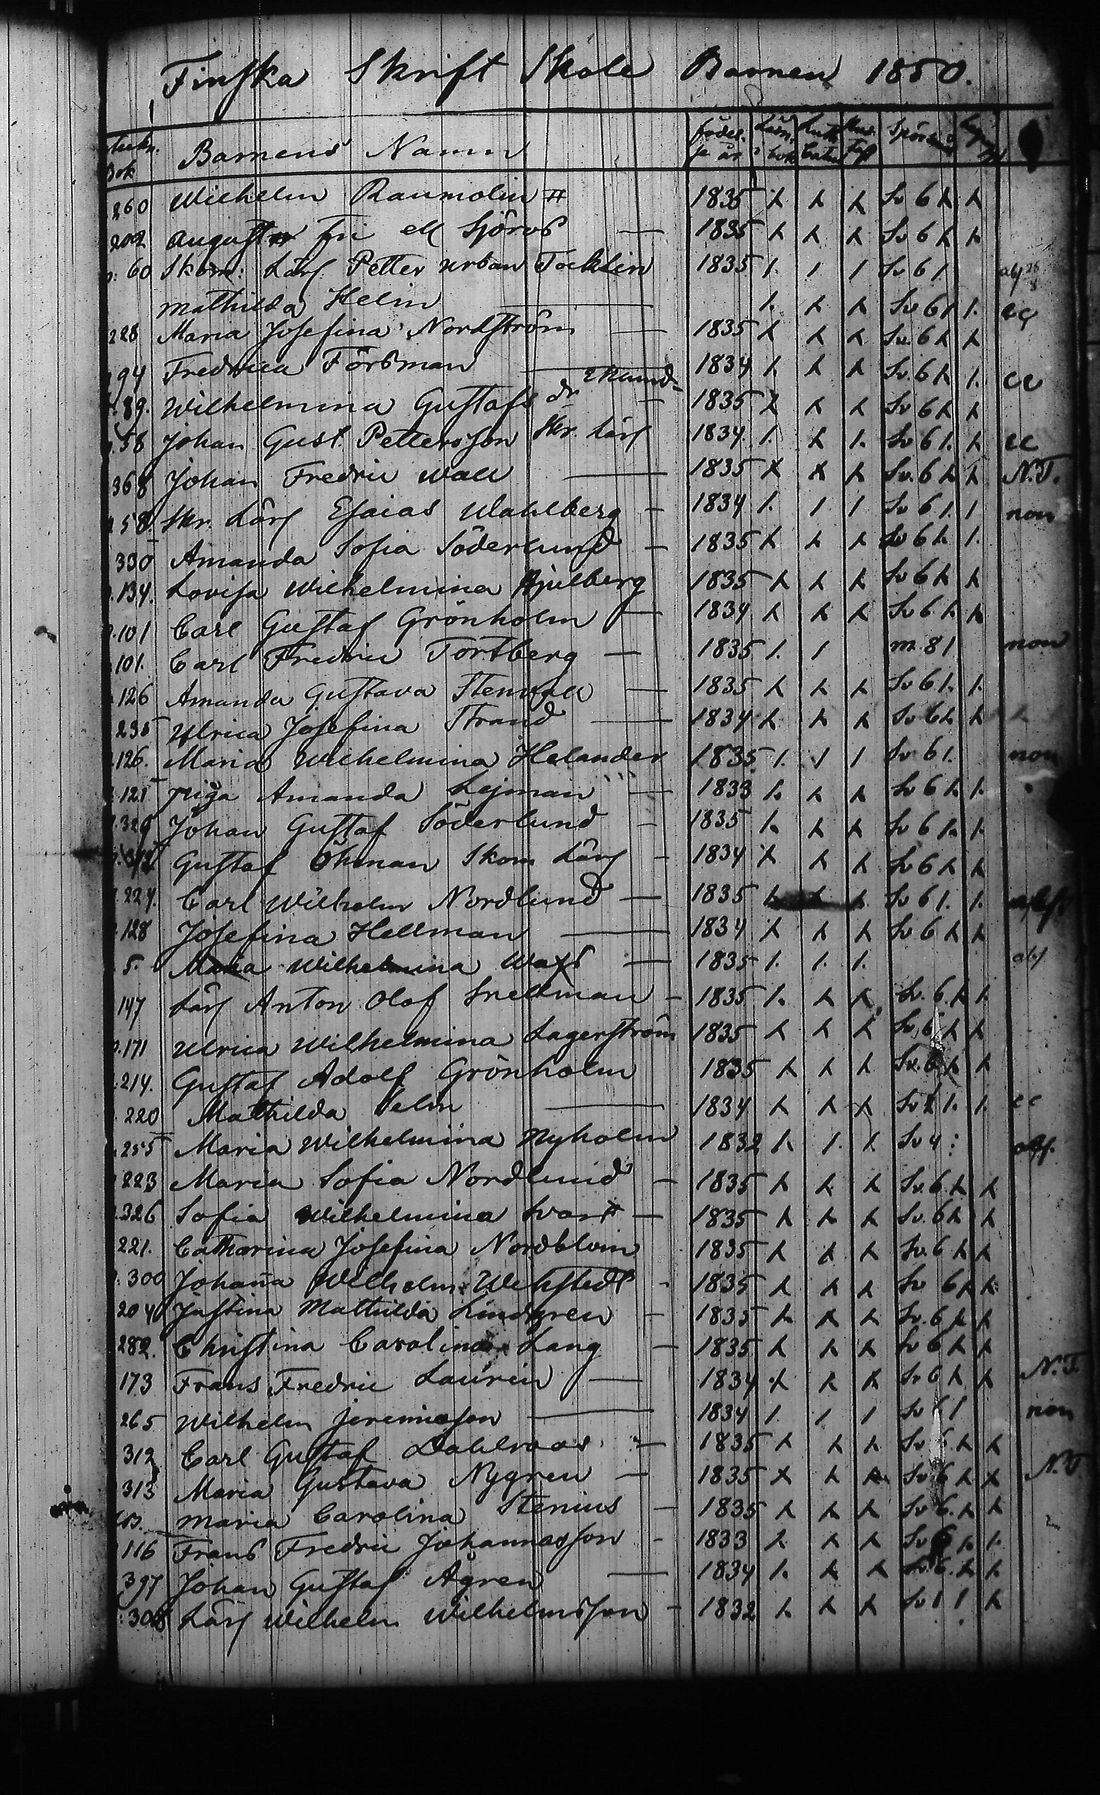 Finska Skrift Skole Barnen 1850.
Bok Barnens Namn födel- se år
260 Wilhelm Raumolin # 1835 x x x Sv 6 x x
202 August fri ell Sjöroos — 1835 x x x Sv 6 x x
p. 60 Skom. Lärl Petter Urban Tocklin 1835 1. 1 1 Sv 6 1
Mathilda Helin — 1. x x Sv 6 1. 1.
228 Maria Josefina Nordström — 1835 x x x Sv. 6 x x
94 Fredrica Forsman — 1834 1. x x Sv. 6 x 1.
89. Wilhelmina Gustafs dr — 1835 x x x Sv 6 x x
58 Johan Gust. Pettersson Skr. Lärl 1834 1. x 1. Sv 6 1. x
368 Johan Fredric Wall — 1835 x x x Sv. 6 x x N.T.
258 Skr. Lärl Esaias Wahlberg — 1834 1. 1 1 Sv 6 1. 1 non
330 Amanda Sofia Söderlund — 1835 x x x Sv 6 x 1.
134. Lovisa Wilhelmina Hjulberg 1835 x x x Sv 6 x x
101 Carl Gustaf Grönholm — 1834 x x x Sv 6 x x
101. Carl Fredric Torsberg — 1835 1. 1 m. 8 1 non
126 Amanda Gustava Stenvall — 1835 x x x Sv 6 1. 1.
235 Ulrica Josefina Strand — 1834 x x x Sv 6 x x
126. Maria Wilhelmina Helander 1835 1. 1 1 Sv 6 1. non
121 Amanda Lejman — 1833 1. x x Sv 6 x 1.
329 Johan Gustaf Söderlund — 1835 1. x x Sv 6 1. 1.
Gustaf Öhman Skom Lärl — 1834 x x x Sv 6 x x
224. Carl Wilhelm Nordlund — 1835 1. x x Sv 6 1. 1.
128 Josefina Hellman — 1834 x x x Sv 6 x x
5. Maria Wilhelmina — 1835 1. 1. 1.
147 Lärl Anton Olof Snellman — 1835 1. x x Sv. 6. x 1.
171 Ulrica Wilhelmina Lagerström 1835 x x x Sv 6 x x
214. Gustaf Adolf Grönholm 1835 x x x Sv. 6 x x
220 Mathilda Selin — 1834 x x x Sv x 1. 1.
255 Maria Wilhelmina Nyholm 1832 1. 1. 1. Sv 4
223 Maria Sofia Nordlund — 1835 x x x Sv. 6 x x
326 Sofia Wilhelmina Svart — 1835 x x x Sv. 6 x x
221. Catharina Josefina Nordblom 1835 x x x Sv. 6 x x
300 Johana Wilhelm. Wekstedt - 1835 x x x Sv 6 x x
204 Justina Mathilda Lindgren — 1835 x x x Sv. 6 x x
282. Christina Carolina Lang — 1835 x x x Sv 6 x x
173 Frans Fredric Lauren — 1834 x x x Sv 6 x x N.T.
265 Wilhelm Jeremiasson — 1834 1. 1 1 Sv 6 1 non
312 Carl Gustaf Dahlroos — 1835 x x x Sv 6 x x
313 Maria Gustava Nygren — 1835 x x x Sv 6 x x
Maria Carolina Stenius — 1835 x x x Sv 6 x x
116 Frans Fredric Johannesson - 1833 x x x Sv 6 x 1.
397 Johan Gustaf Ågren — 1834 1. x x Sv. 6 x x
Lärl Wilhelm Wilhelmsson - 1832 x x x Sv 1 1 x